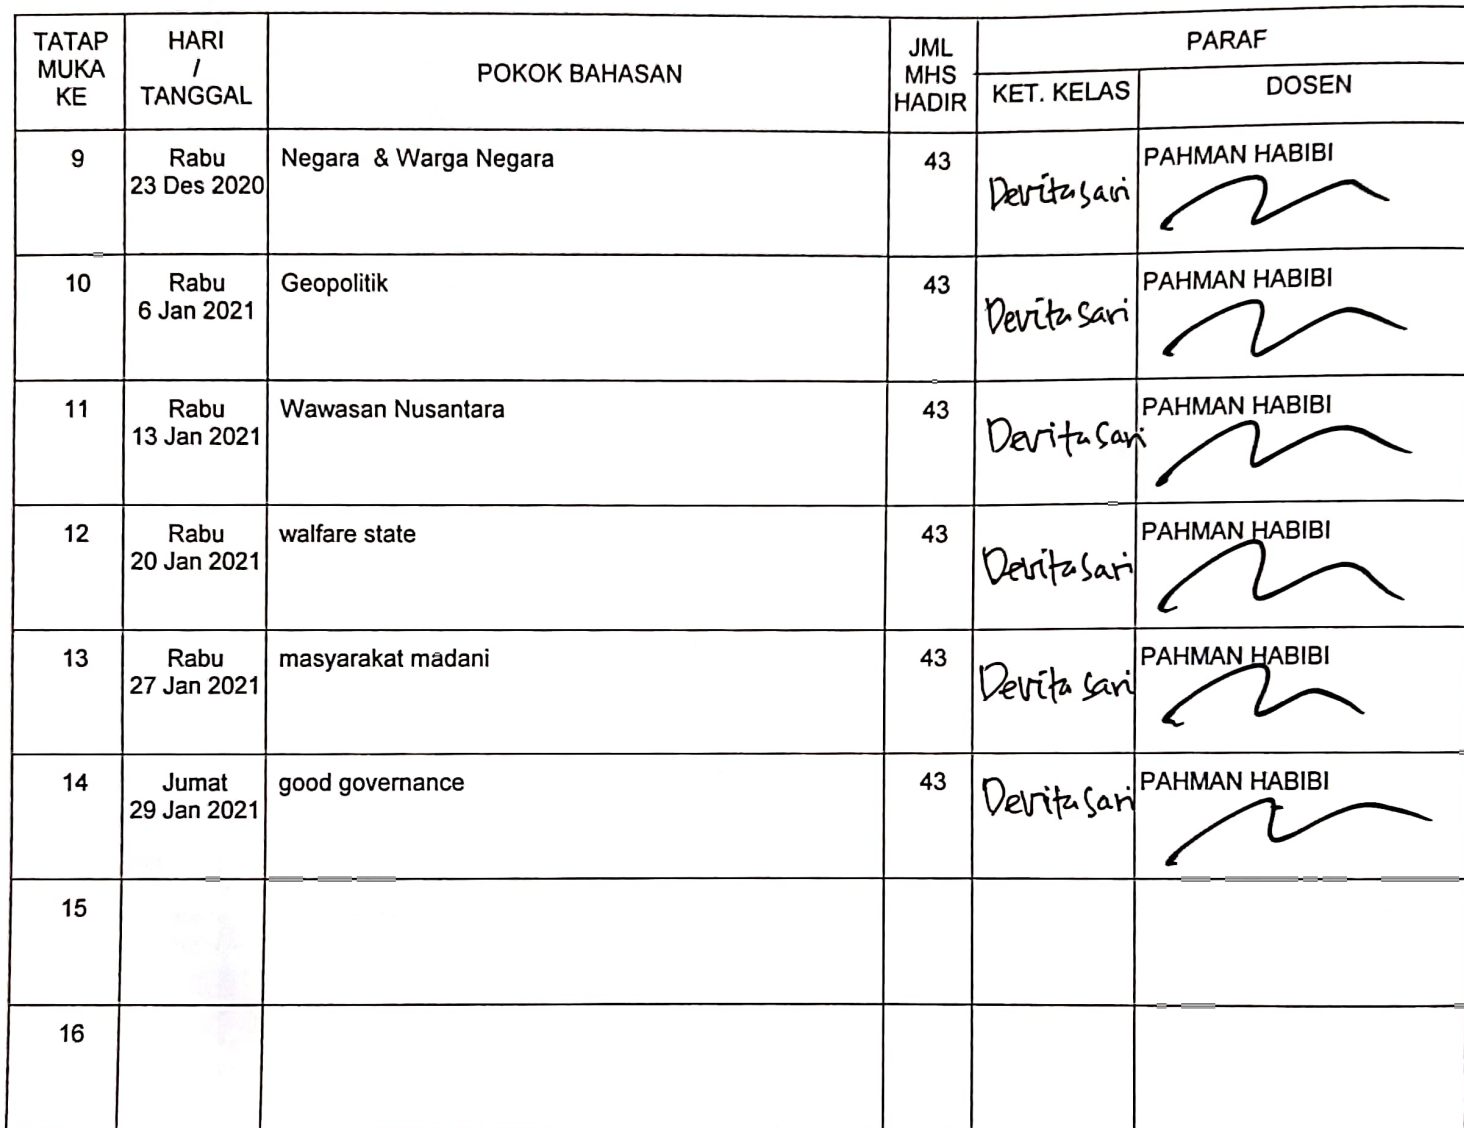 TATAP MUKA KE
HARI / TANGGAL
POKOK BAHASAN
JML MHS HADIR
PARAF
KET. KELAS
DOSEN
9
Rabu
23 Des 2020
Negara & Warga Negara
43
Devita Sari
PAHMAN HABIBI
10
Rabu
6 Jan 2021
Geopolitik
43
Devita Sari
PAHMAN HABIBI
11
Rabu
13 Jan 2021
Wawasan Nusantara
43
Devita Sari
PAHMAN HABIBI
12
Rabu
20 Jan 2021
walfare state
43
Devita Sari
PAHMAN HABIBI
13
Rabu
27 Jan 2021
masyarakat madani
43
Devita Sari
PAHMAN HABIBI
14
Jumat
29 Jan 2021
good governance
43
Devita Sari
PAHMAN HABIBI
15
16